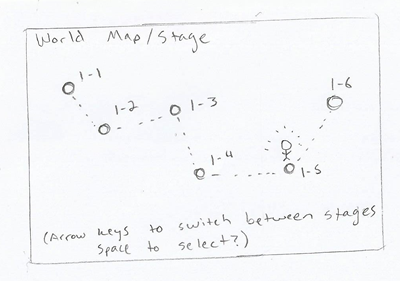 World Map/Stage
1-1
1-2
1-3
1-4
1-5
1-6
(Arrow keys to switch between stages
space to select?)